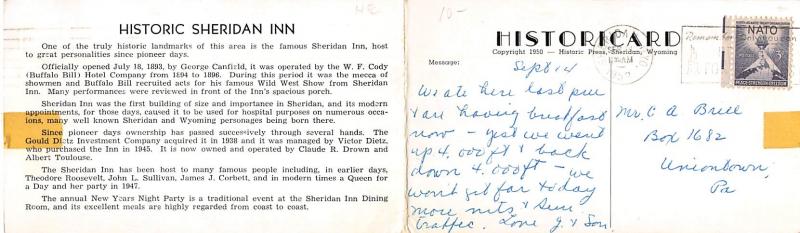 HISTORIC SHERIDAN INN
One of the truly historic landmarks of this area is the famous Sheridan Inn, host
to great personalities since pioneer days.
Officially opened July 18, 1893, by George Canfield, it was operated by the W. F. Cody
(Buffalo Bill) Hotel Company from 1894 to 1896. During this period it was the mecca of
showmen and Buffalo Bill recruited acts for his famous Wild West Show from Sheridan
Inn. Many performances were reviewed in front of the Inn's spacious porch.
Sheridan Inn was the first building of size and importance in Sheridan, and its modern
appointments, for those days, caused it to be used for hospital purposes on numerous occa-
ions, many well known Sheridan and Wyoming personages being born there.
Since pioneer days ownership has passed successively through several hands. The
Gould Dietz Investment Company acquired it in 1938 and it was managed by Victor Dietz,
who purchased the Inn in 1945. It is now owned and operated by Claude R. Drown and
Albert Toulouse.
The Sheridan Inn has been host to many famous people including, in earlier days,
Theodore Roosevelt, John L. Sullivan, James J. Corbett, and in modern times a Queen for
a Day and her party in 1947.
The annual New Years Night Party is a traditional event at the Sheridan Inn Dining
Room, and its excellent meals are highly regarded from coast to coast.
10-
HISTORICARD
Copyright 1950 - Historic Press, Sheridan, Wyoming
Message:
Sept 14
We ate here last pm
& are having breakfast
now - yest we went
up 4,000 ft & back
down 4,000 ft - we
won't get far today
more mts &
traffic. Love J. & Son
NATO
3¢
PEACE·STRENGTH·FREEDOM
Mr. C A Brill
Box 1682
Uniontown,
Pa